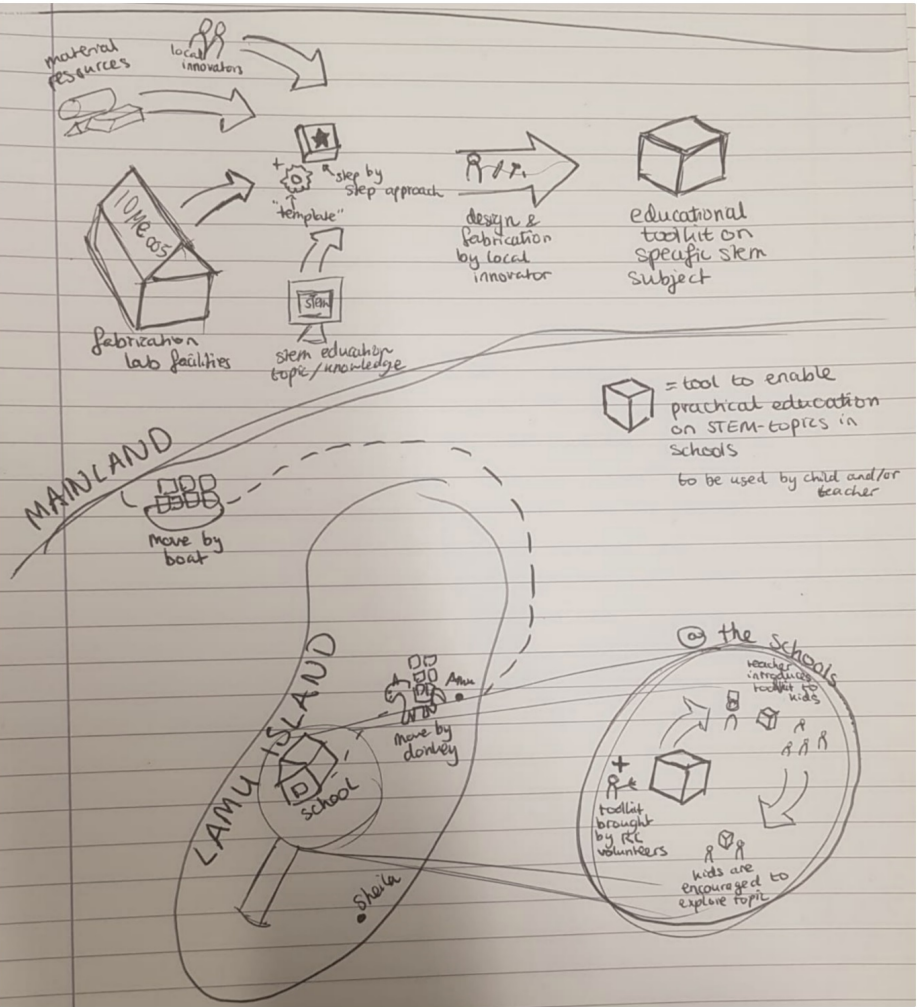 material
resources
local
innovators
IOMe005
fabrization
lab facilities
+
step by
step approach
"template"
STEM
stem education
topic/knowledge
design &
fabrication
by local
innovator
educational
toolkit on
specific stem
subject
= tool to enable
practical education
on STEM-topics in
schools
to be used by child and/or
teacher
MAINLAND
move by
boat
LAMU ISLAND
Amu
move by
donkey
school
Shella
@ the schools
teacher
introduces
toolkit to
kids
+
toolkit
brought
by RC
volunteers
kids are
encouraged to
explore topic